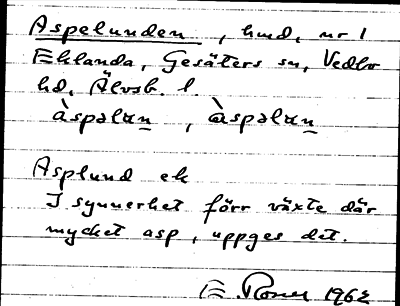 Aspelunden, hmd, nr 1
Ehlanda, Gesäters sn, Vedbo
hd, Älvsb. l.
àspəlun, àspəlun
Asplund ek
I synnerhet förr växte där
mycket asp, uppges det.
E. 1962